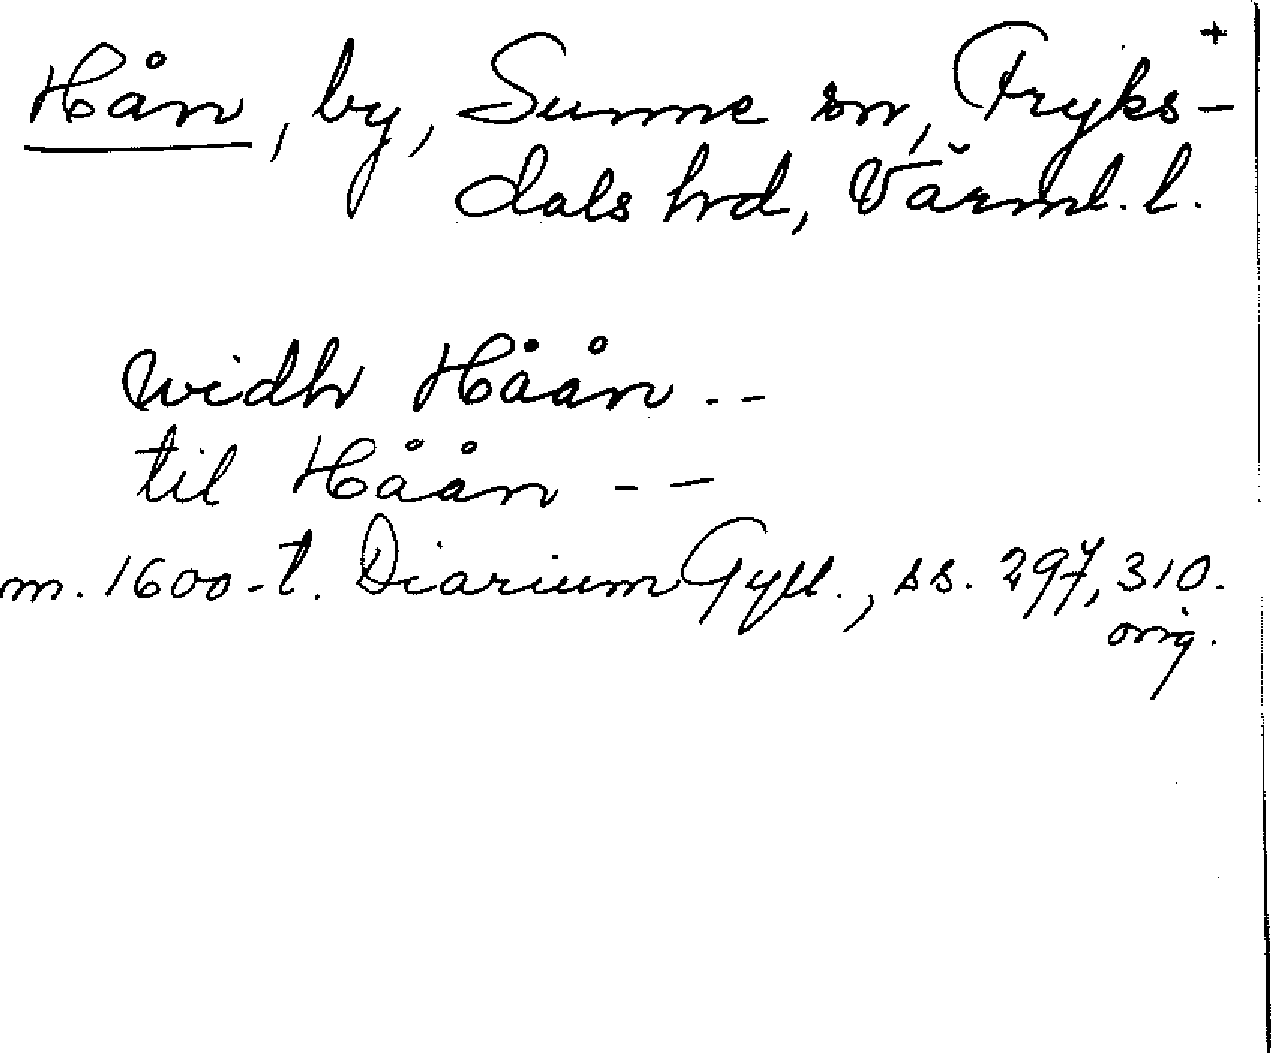 +
Hån, by, Sunne sn, Fryks-
dals hd, Värml. l.
widh Håån --
til Håån --
m. 1600-t. Diarium Gyll., ss. 297, 310.
orig.